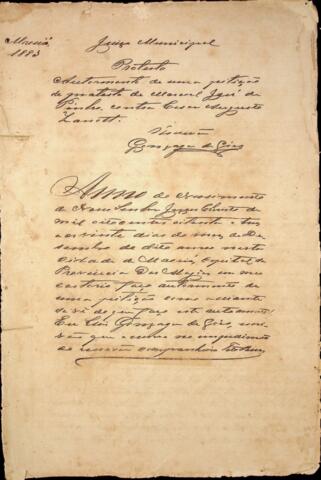 Maceió
1883
Juizo Municipal
Protesto
Autoamento de uma petição
de protesto de Manoel José de
Pinho, contra Cesar Augusto
Escrivão
Gonzaga de Góes
Anno do Nascimento
de Nosso Senhor Jesus Christo de
mil oitocentos oitenta e tres
aos vinte dias do mez de De
sembro do dito anno nesta
Cidade de Maceió, Capital da
Provincia das Alagôas em meu
cartorio faço autoamento de
uma petição como adiante
se vê do que faço este autoamento
Eu Luis Gonzaga de Góes,
vão que escrevo no impedimento
do escrivão companheiro